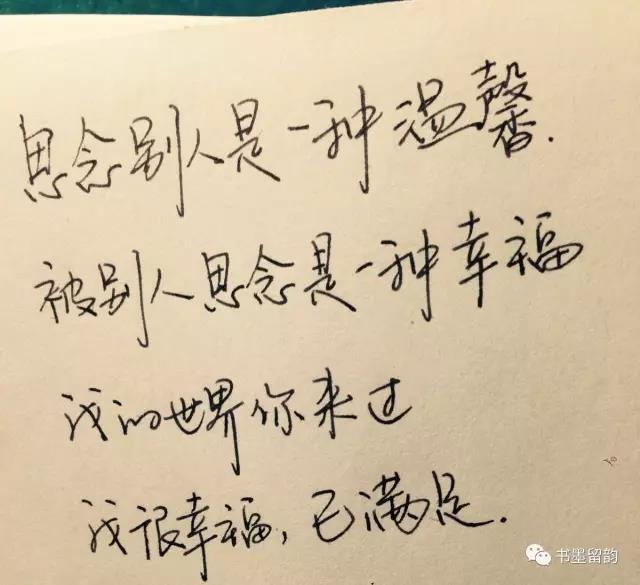 思念别人是一种温馨.
被别人思念是一种幸福
我的世界你来过
我很幸福,已满足.
书墨留韵